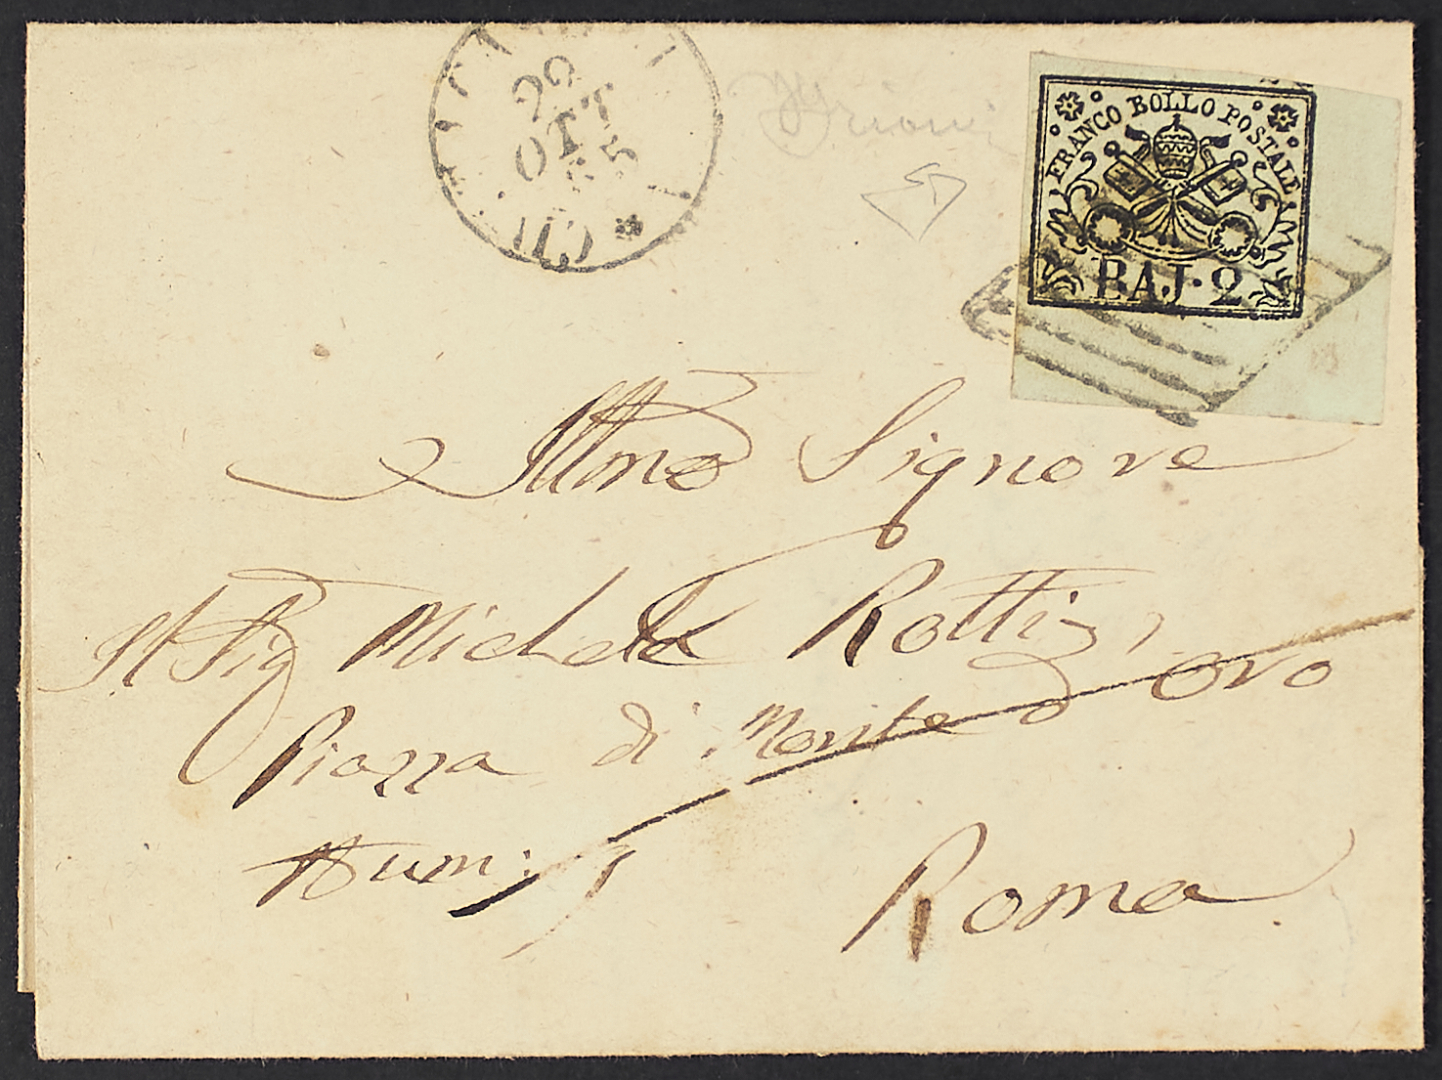 22
OTT
65
FRANCO BOLLO POSTALE
BAJ. 2
Illmo Signore
Il Sig Michele Rotti
Piazza di Monte d oro
Num:
Roma